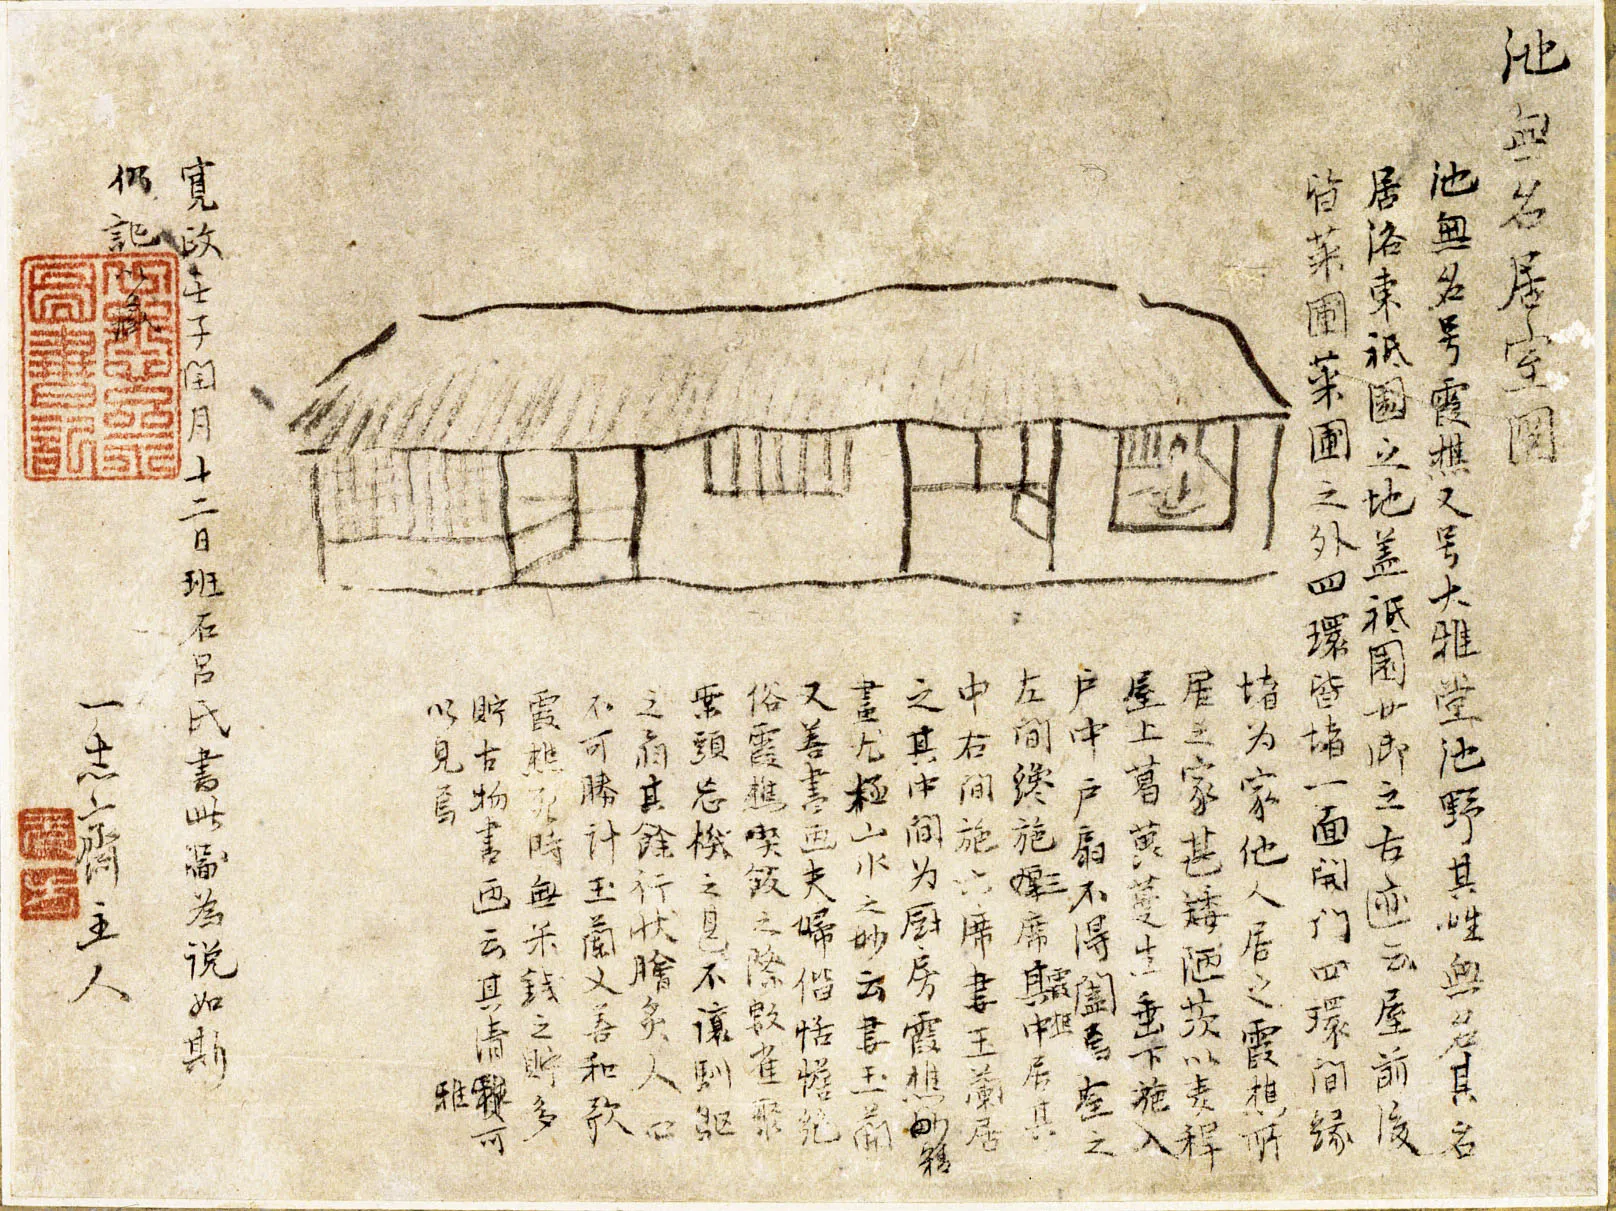 池無名居室図
池無名号霞樵又号大雅堂池野其姓無名其名
居洛東祇園之地盖祇園廿卿之古迹云屋前後
皆菜圃菜圃之外四環皆堵一面開门四環間緣
堵为家他人居之霞樵所
居之家甚矮陋茨以麦稈
屋上葛藟蔓生垂下施入
户中户扇不得闔焉座之
左間纔施三席霞樵居其
中右間施六席妻玉蘭居
之其中間为厨房霞樵妙
畫尤極山水之妙云妻玉蘭
又善畫画夫婦偕恬憺絶
俗霞樵喫飯之際数雀聚
案頭忘機之見不讓馴鷗
之翁其餘行状膾炙人口
不可勝計玉蘭又善和歌
霞樵死時無米錢之貯多
貯古物書画云其清雅可
以見焉
寛政壬子閏月十二日班石呂氏書此啚為说如斯
仍記以藏
一志上齋主人